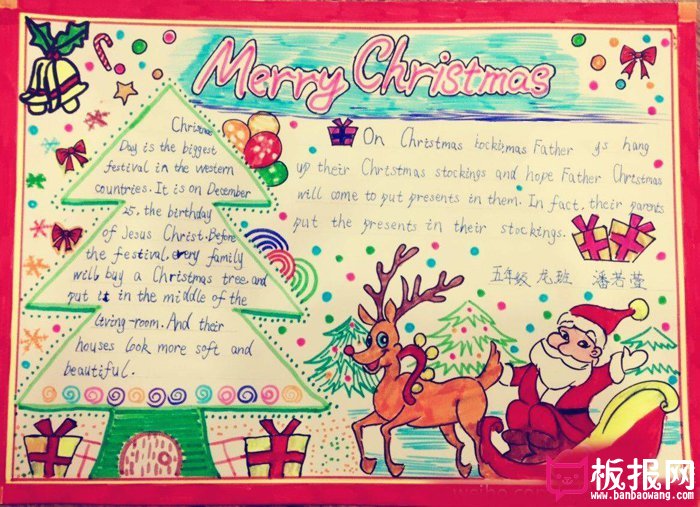 Merry Christmas
Christmas
Day is the biggest
festival in the western
countries. It is on December
25, the birthday
of Jesus Christ. Before
the festival, every family
will buy a Christmas tree and
put it in the middle of the
living-room. And their
houses look more soft and
beautiful.
On Christmas Father ys hang
up their Christmas stockings and hope Father Christmas
will come to put presents in them. In fact, their parents
put the presents in their stockings.
五年级 龙班 潘若萱
板报网
www.banbaowang.com